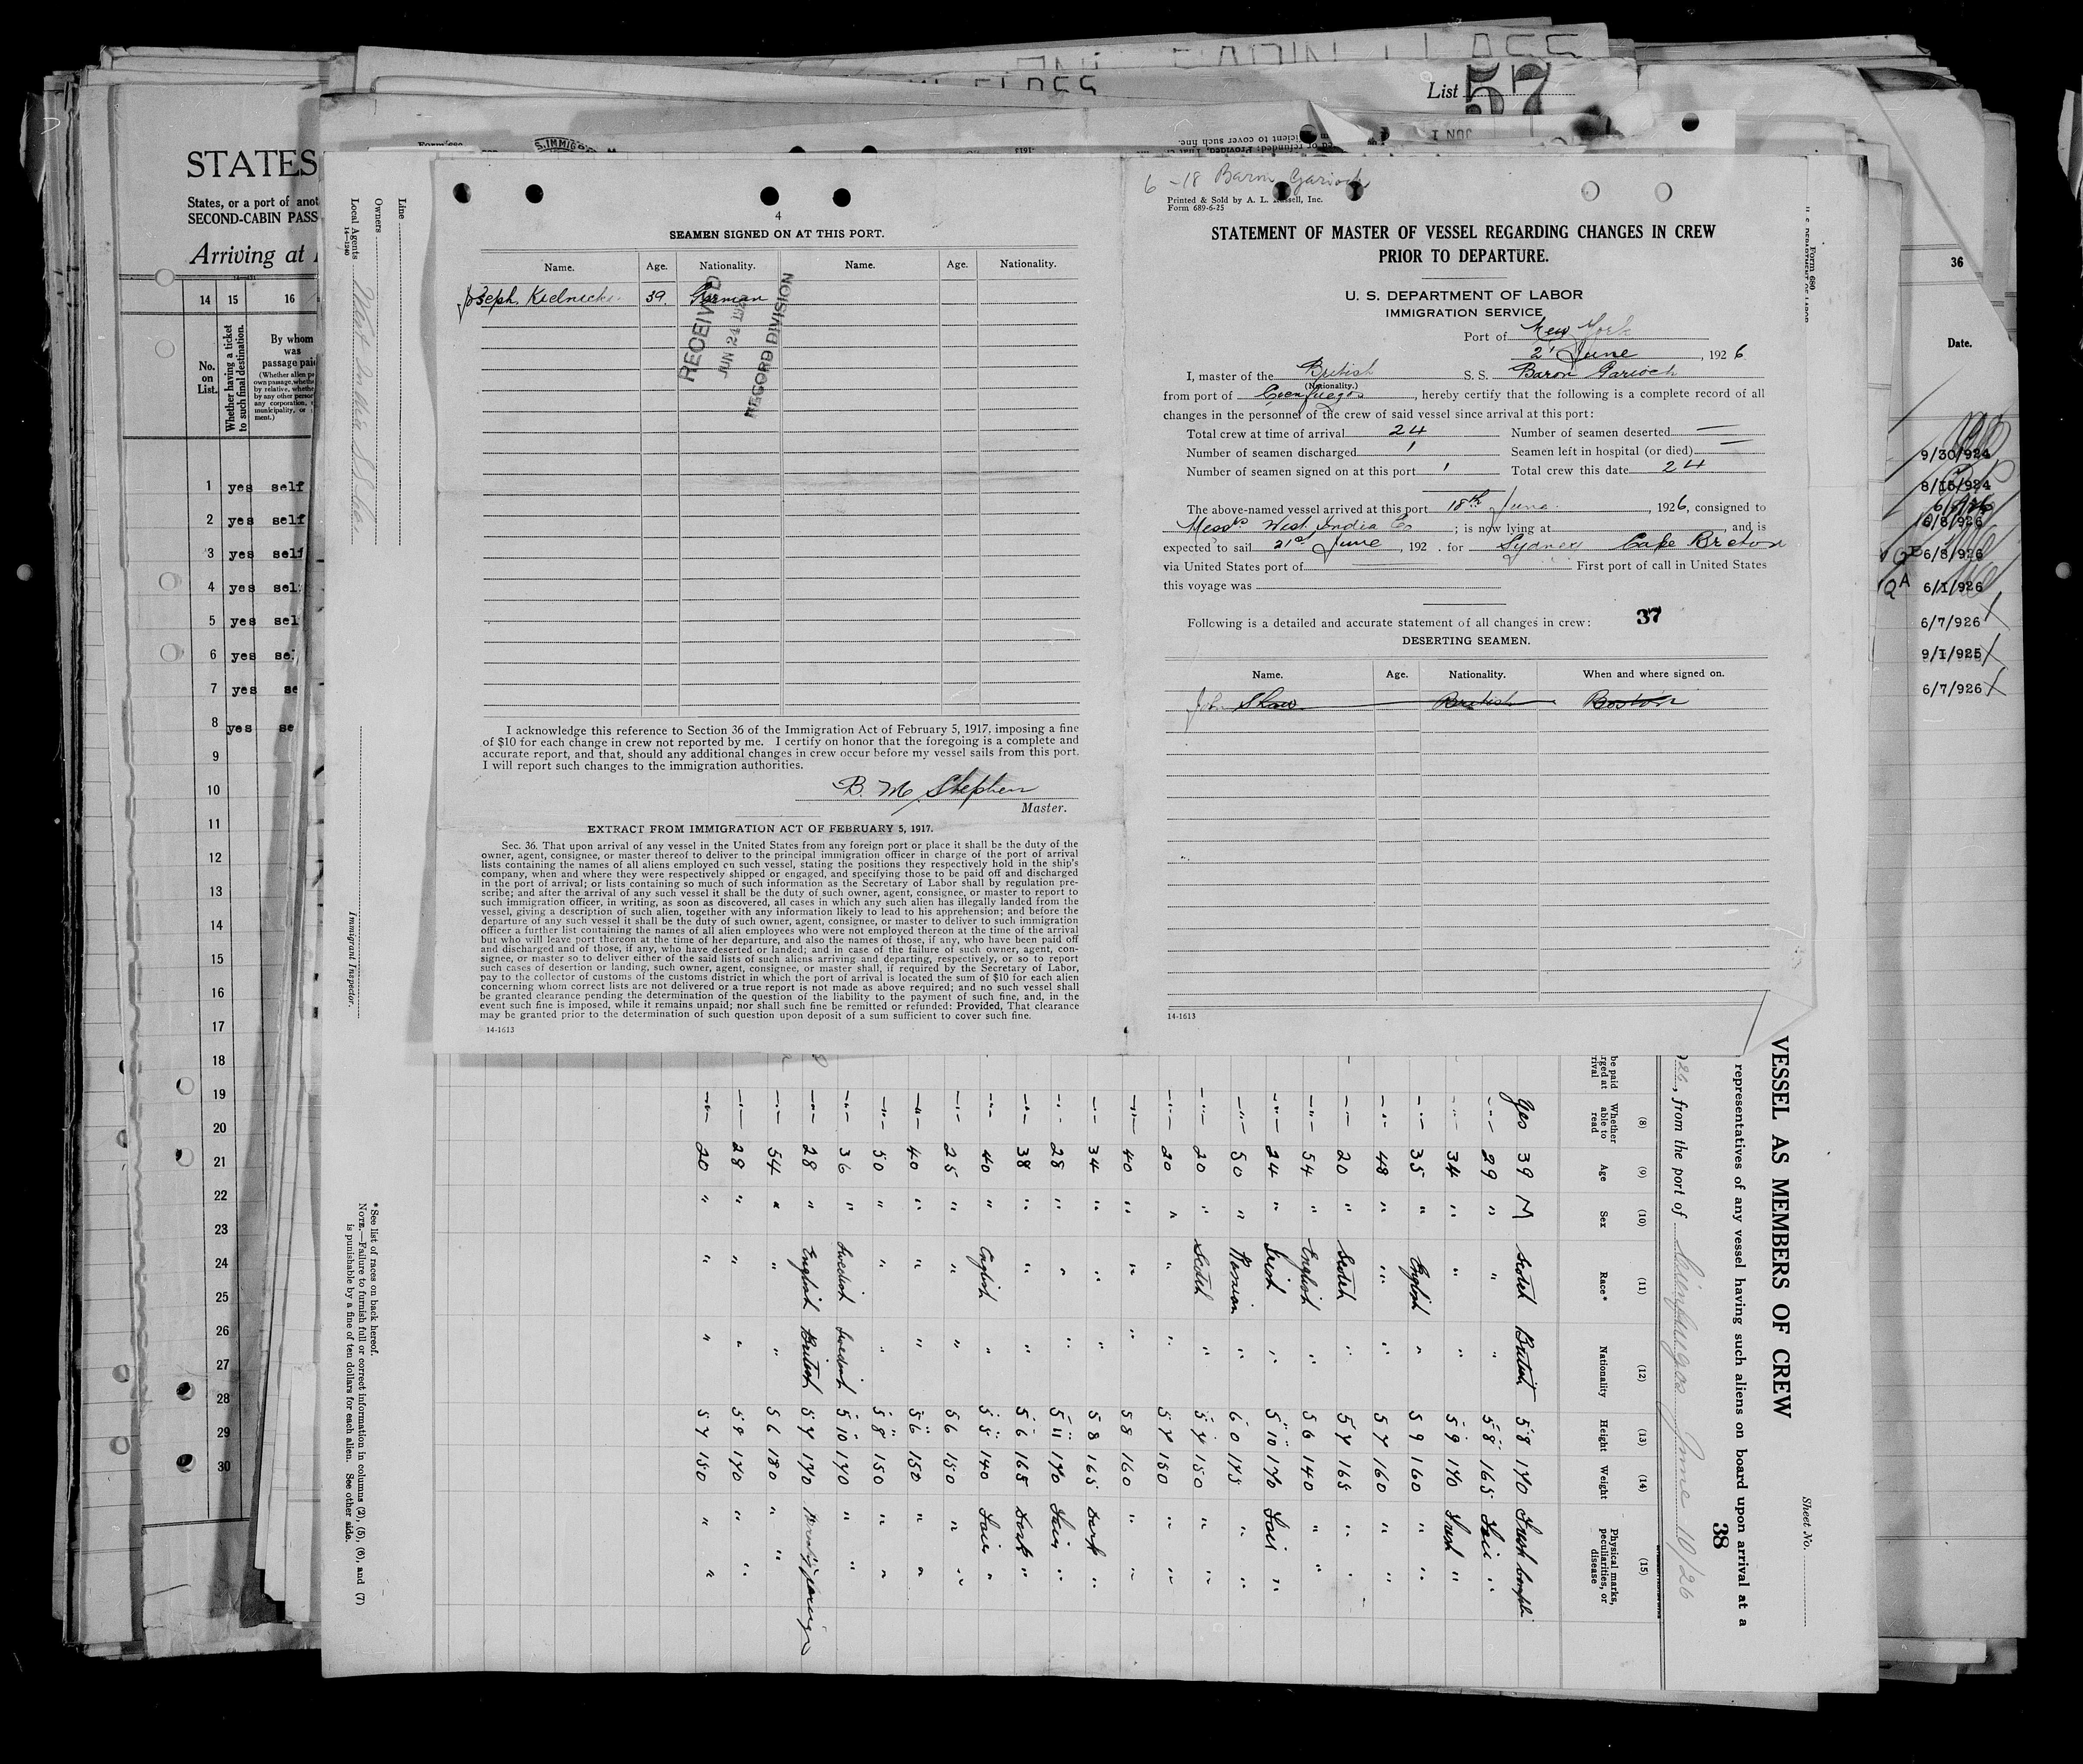 List 57
STATES
States, or a port of anot
SECOND-CABIN PASS
Arriving at
14 15 16
No. on List.
Whether having a ticket to such final destination.
By whom was passage paid
1 yes self
2 yes self
3 yes self
4 yes sel
5 yes sel
6 yes se
7 yes se
8 yes se
9
10
11
12
13
14
15
16
17
18
19
20
21
22
23
24
25
26
27
28
29
30
Line
Owners
Local Agents West India S.S. Co.
14—1240
Immigrant Inspector.
4
SEAMEN SIGNED ON AT THIS PORT.
Name. Age. Nationality. Name. Age. Nationality.
Joseph 39. German
RECEIVED
JUN 24
RECORD DIVISION
I acknowledge this reference to Section 36 of the Immigration Act of February 5, 1917, imposing a fine
of $10 for each change in crew not reported by me. I certify on honor that the foregoing is a complete and
accurate report, and that, should any additional changes in crew occur before my vessel sails from this port.
I will report such changes to the immigration authorities.
B. M Stephen
Master.
EXTRACT FROM IMMIGRATION ACT OF FEBRUARY 5, 1917.
Sec. 36. That upon arrival of any vessel in the United States from any foreign port or place it shall be the duty of the
owner, agent, consignee, or master thereof to deliver to the principal immigration officer in charge of the port of arrival
lists containing the names of all aliens employed on such vessel, stating the positions they respectively hold in the ship's
company, when and where they were respectively shipped or engaged, and specifying those to be paid off and discharged
in the port of arrival; or lists containing so much of such information as the Secretary of Labor shall by regulation pre-
scribe; and after the arrival of any such vessel it shall be the duty of such owner, agent, consignee, or master to report to
such immigration officer, in writing, as soon as discovered, all cases in which any such alien has illegally landed from the
vessel, giving a description of such alien, together with any information likely to lead to his apprehension; and before the
departure of any such vessel it shall be the duty of such owner, agent, consignee, or master to deliver to such immigration
officer a further list containing the names of all alien employees who were not employed thereon at the time of the arrival
but who will leave port thereon at the time of her departure, and also the names of those, if any, who have been paid off
and discharged and of those, if any, who have deserted or landed; and in case of the failure of such owner, agent, con-
signee, or master so to deliver either of the said lists of such aliens arriving and departing, respectively, or so to report
such cases of desertion or landing, such owner, agent, consignee, or master shall, if required by the Secretary of Labor,
pay to the collector of customs of the customs district in which the port of arrival is located the sum of $10 for each alien
concerning whom correct lists are not delivered or a true report is not made as above required; and no such vessel shall
be granted clearance pending the determination of the question of the liability to the payment of such fine, and, in the
event such fine is imposed, while it remains unpaid; nor shall such fine be remitted or refunded: Provided, That clearance
may be granted prior to the determination of such question upon deposit of a sum sufficient to cover such fine.
14-1613
6-18 Baron Garioch
Printed & Sold by A. L. Russell, Inc.
Form 689-6-25
STATEMENT OF MASTER OF VESSEL REGARDING CHANGES IN CREW
PRIOR TO DEPARTURE.
U. S. DEPARTMENT OF LABOR
IMMIGRATION SERVICE
Port of New York
21 June, 1926
I, master of the British S. S. Baron Garioch
(Nationality.)
from port of Cienfuegos, hereby certify that the following is a complete record of all
changes in the personnel of the crew of said vessel since arrival at this port:
Total crew at time of arrival 24 Number of seamen deserted —
Number of seamen discharged 1 Seamen left in hospital (or died) —
Number of seamen signed on at this port 1 Total crew this date 24
The above-named vessel arrived at this port 18th June, 1926, consigned to
Messrs West India Co; is now lying at , and is
expected to sail 21st June, 192 . for Sydney Cape Breton
via United States port of First port of call in United States
this voyage was
Following is a detailed and accurate statement of all changes in crew: 37
DESERTING SEAMEN.
Name. Age. Nationality. When and where signed on.
John Shaw British Boston
14-1613
36
Date.
9/30/924
8/15/924
6/8/926
6/8/926
QA 6/1/926
6/7/926
9/1/925
6/7/926
Form 680
Sheet No.
VESSEL AS MEMBERS OF CREW
representatives of any vessel having such aliens on board upon arrival at a
38
, from the port of Cienfuegos June 10/26
(8) (9) (10) (11) (12) (13) (14) (15)
Whether able to read Age Sex Race* Nationality Height Weight Physical marks, peculiarities, or disease
Yes 39 M Scotch British 5 8 170 Fresh
" 29 " " " 5 8 165 Fair "
" 34 " " " 5 9 170 Fresh "
" 35 " English " 5 9 160 " "
" 48 " " " 5 7 160 " "
" 20 " Scotch " 5 7 165 " "
" 54 " English " 5 6 140 " "
" 24 " Irish " 5 10 170 Fair "
" 50 " " 6 0 175 " "
" 20 " Scotch " 5 7 150 " "
" 20 " " " 5 7 150 " "
" 40 " " " 5 8 160 " "
" 34 " " " 5 8 165 Dark "
" 28 " " " 5 11 170 Fair "
" 38 " " " 5 6 165 Dark "
" 40 " English " 5 5 140 Fair "
" 25 " " " 5 6 150 " "
" 40 " " " 5 6 150 " "
" 50 " " " 5 8 150 " "
" 36 " Swedish Swedish 5 10 170 " "
" 28 " English British 5 7 170
" 54 " " " 5 6 180 " "
" 28 " " " 5 9 170 " "
" 20 " " " 5 7 150 " "
*See list of races on back hereof.
NOTE.—Failure to furnish full or correct information in columns (2), (5), (6), and (7)
is punishable by a fine of ten dollars for each alien. See other side.